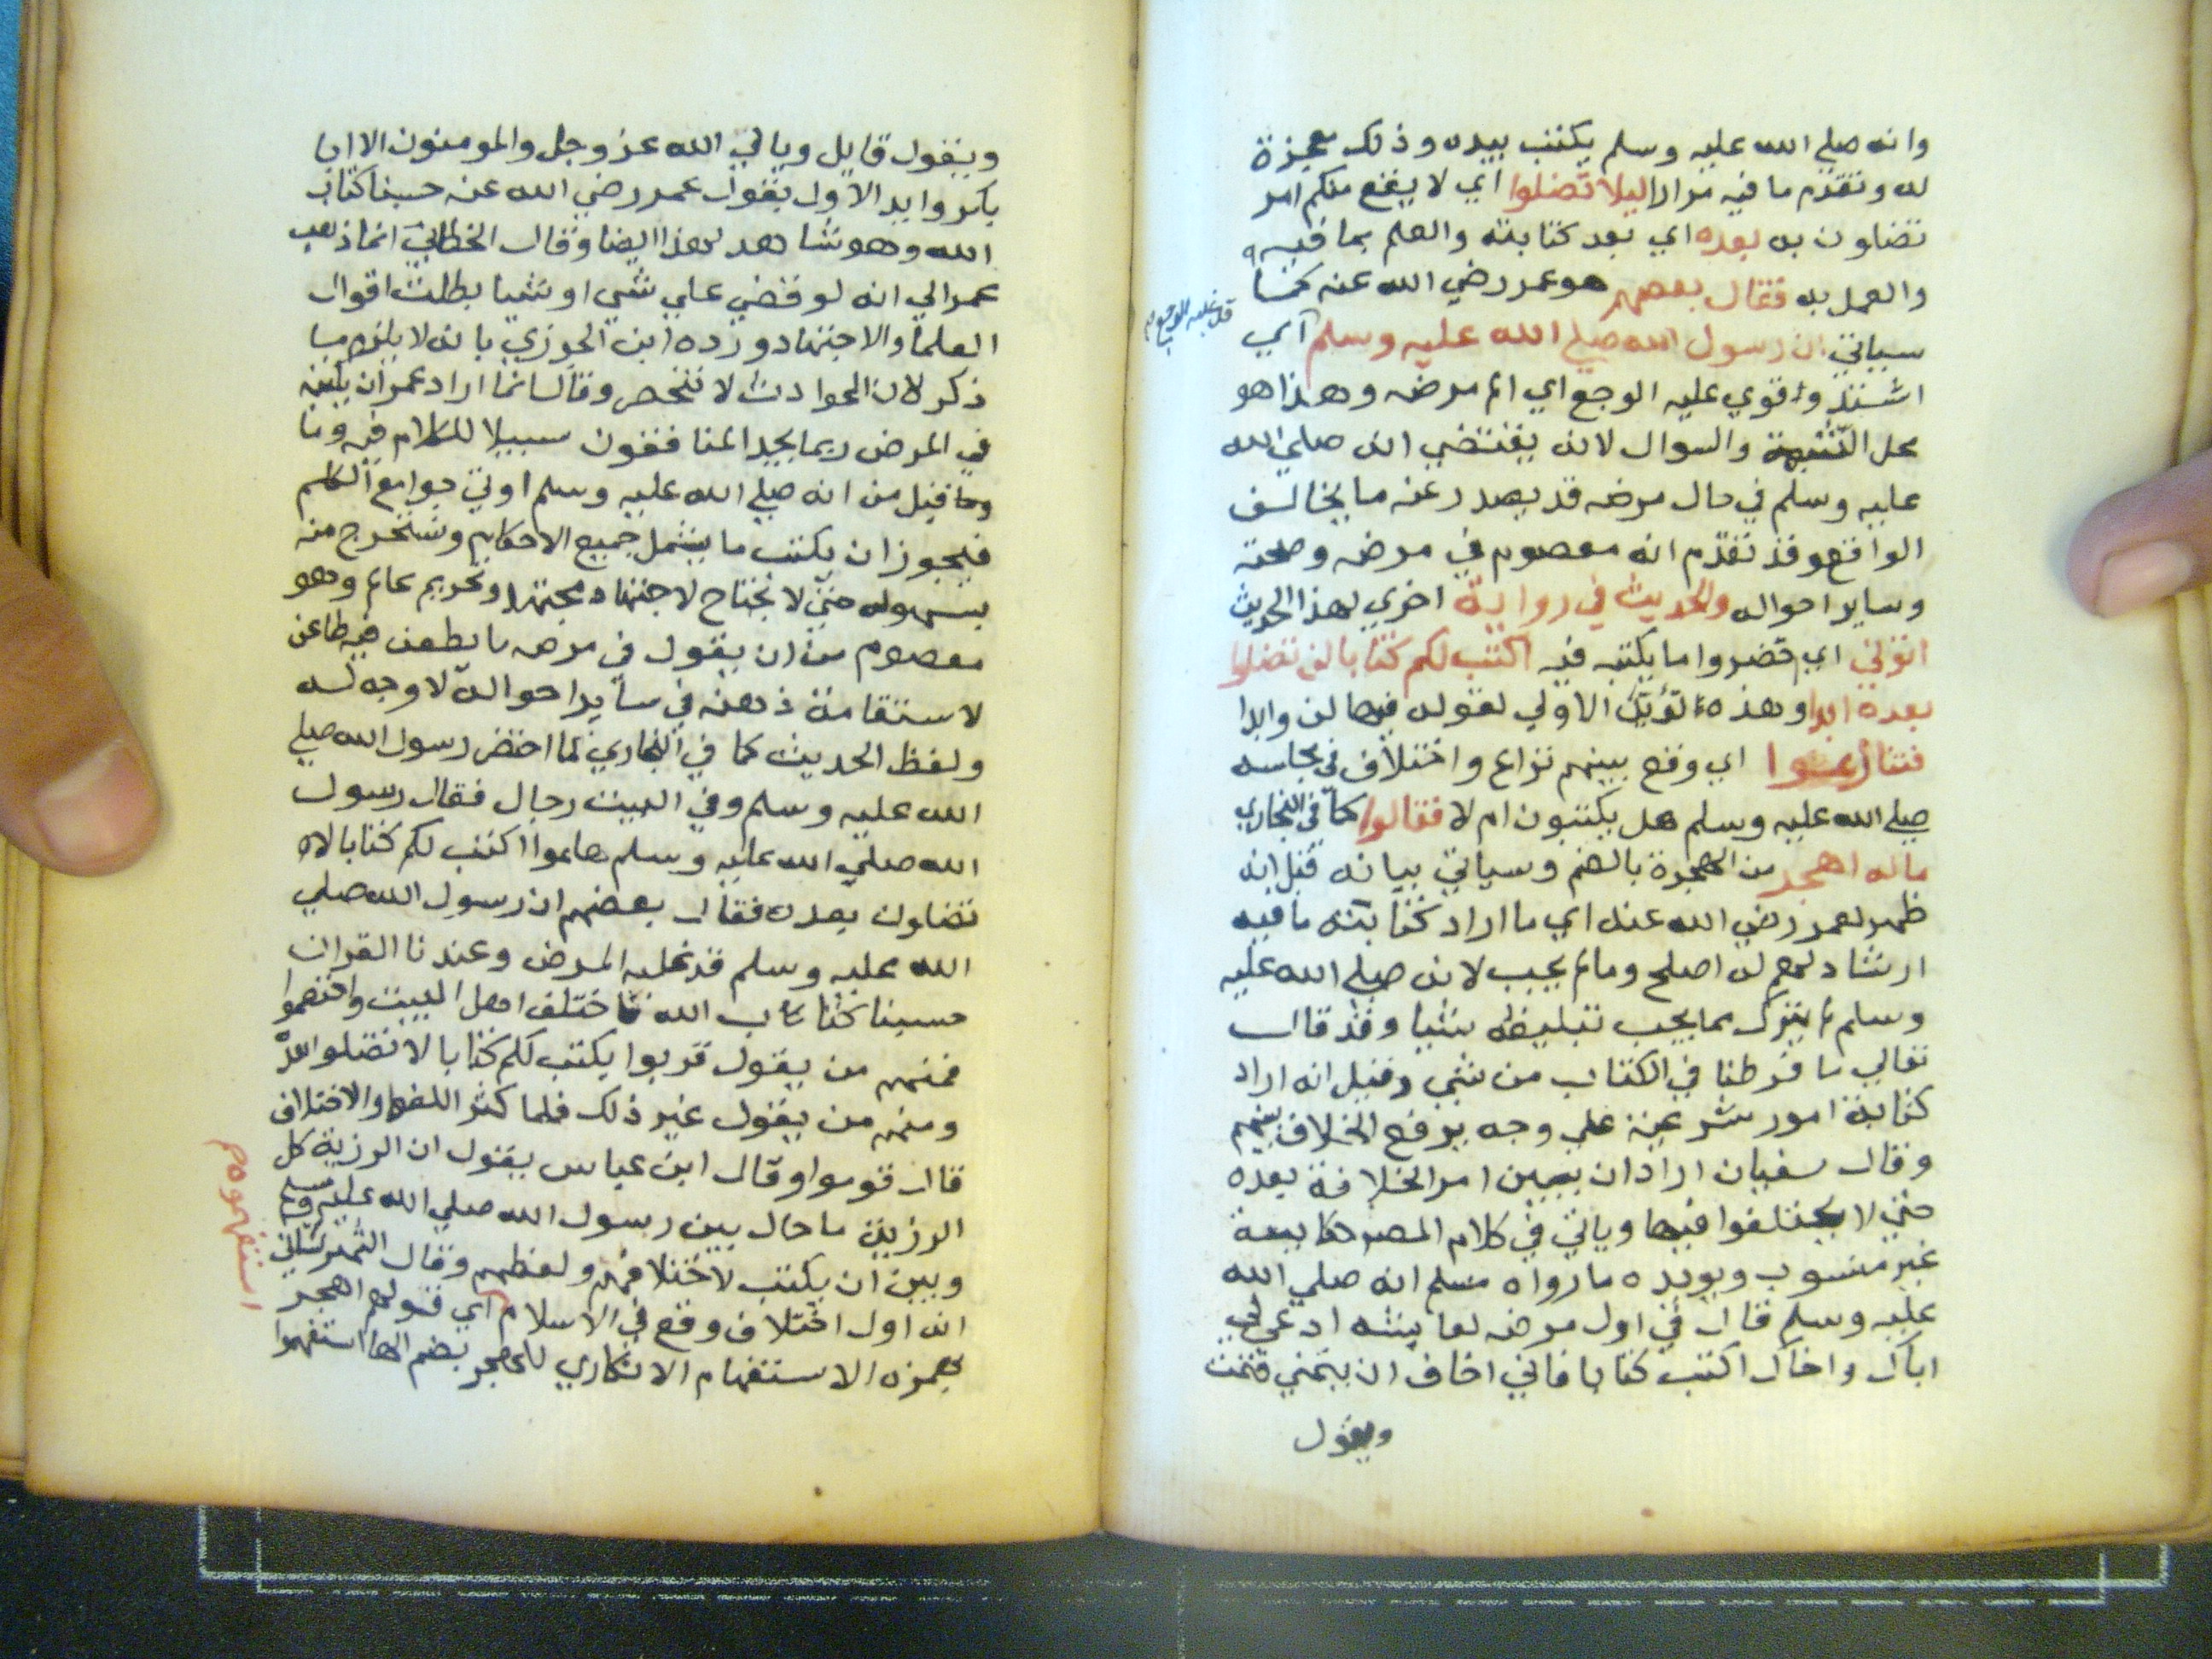 وانه صلي الله عليه وسلم يكتب بيده وذلك معجزة
له وتقدم ما فيه مرارا ليلا تضلوا اي لا يقع منكم امر
تضلون به بعده اي بعد كتابته والعلم بما فيه
والعمل به فقال بعضهم هو عمر رضي الله عنه كما
سياتي ان رسول الله صلي الله عليه وسلم اي
قد غلبه الوجع
اشتد وقوي عليه الوجع اي الم مرضه وهذا هو
محل الشبهة والسوال لانه يقتضي انه صلي الله
عليه وسلم في حال مرضه قد يصدر عنه ما يخالف
الواقع وقد تقدم انه معصوم في مرضه وصحته
وساير احواله والحديث في رواية اخري لهذا الحديث
اتوني اي احضروا ما يكتب فيه اكتب لكم كتابا لن تضلوا
بعده ابدا وهذه الاولي لقوله فيها لن وابدا
فتنازعوا اي وقع بينهم نزاع واختلاف في مجلسه
صلي الله عليه وسلم هل يكتبون ام لا فقالوا كما في البخاري
ماله اهجر من الهجرة بالضم وسياتي بيانه قيل انه
ظهر لعمر رضي الله عنه اي ما اراد كتابته ما فيه
ارشاد لهم لن اصلح وما لم يجب لانه صلي الله عليه
وسلم لا يترك مما يجب تبليغه شيا وقد قال
تعالي ما فرطنا في الكتاب من شي وقيل انه اراد
كتابة امور شرعية علي وجه يرفع الخلاف بينهم
وقال سفيان اراد ان يبين امر الخلافة بعده
حتي لا يختلفوا فيها وياتي في كلام المصر حكايته
غير منسوب ويويده ما رواه مسلم انه صلي الله
عليه وسلم قال في اول مرضه لعايشه ادعي لي
اباك واخاك اكتب كتابا فاني اخاف ان يتمني متمن
ويقول
ويقول قايل ويابي الله عز وجل والمومنون الا ابا
بكر وايد الاول بقول عمر رضي الله عنه حسبنا كتاب
الله وهو شاهد لهذا ايضا وقال الخطابي انما ذهب
عمر الي انه لو قضي علي شي او شيا بطلت اقوال
العلما والاجتهاد ورده ابن الجوزي بانه لا يلزم ما
ذكر لان الحوادث لا تنحصر وقال انما اراد عمر ان يكتبه
في المرض ربما يجد المنافقون سبيلا للكلام فيه
وما قيل من انه صلي الله عليه وسلم اوتي جوامع الكلم
فيجوز ان يكتب ما يشمل جميع الاحكام وتستخرج منه
بسهولة حتي لا تحتاج لاجتهاد مجتهد وتحريم عالم وهو
معصوم من ان يقول في مرضه ما يطعن فيه طاعن
لاستقامة ذهنه في ساير احواله لا وجه له
ولفظ الحديث كما في البخاري لما احتضر رسول الله صلي
الله عليه وسلم وفي البيت رجال فقال رسول
الله صلي الله عليه وسلم هلموا اكتب لكم كتابا لا
تضلون بعده فقال بعضهم ان رسول الله صلي
الله عليه وسلم قد غلبه المرض وعندنا القران
حسبنا كتاب الله فاختلف اهل البيت واختصموا
فمنهم من يقول قربوا يكتب لكم كتابا لا تضلوا بعده
ومنهم من يقول غير ذلك فلما كثر اللغو والاختلاف
قال قوموا وقال ابن عباس يقول ان الرزية كل
الرزية ما حال بين رسول الله صلي الله عليه وسلم
وبين ان يكتب لاختلافهم ولغطهم وقال الشهرستاني
انه اول اختلاف وقع في الاسلام اي قولهم اهجر
بهمزة الاستفهام الانكاري للهجر بضم الها استفهموا
استفهموه